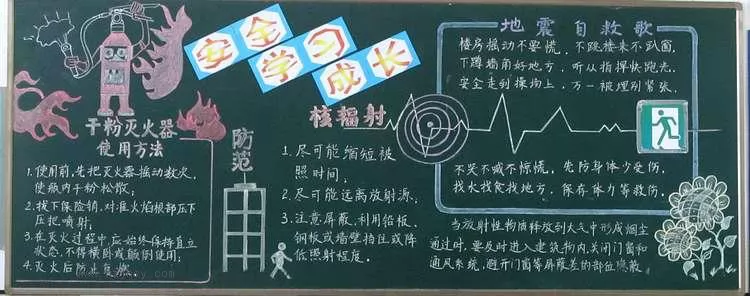 安全
学习
成长
干粉灭火器
使用方法
1.使用前,先把灭火器摇动数次,
使瓶内干粉松散;
2.拔下保险销,对准火焰根部压下
压把喷射;
3.在灭火过程中,应始终保持直立
状态,不得横卧或颠倒使用;
4.灭火后防止复燃
防范
核辐射
1.尽可能缩短被
照时间;
2.尽可能远离放射源;
3.注意屏蔽,利用铅板、
钢板或墙壁挡住或降
低照射程度。
地震自救歌
楼房摇动不要慌,不跳楼来不趴窗,
下蹲墙角好地方,听从指挥快跑光,
安全走到操场上,万一被埋别紧张,
不哭不喊不惊慌,先防身体少受伤,
找水找食找地方,保存体力等救伤。
当放射性物质释放到大气中形成烟尘
通过时,要及时进入建筑物内,关闭门窗和
通风系统,避开门窗等屏蔽差的部位隐蔽